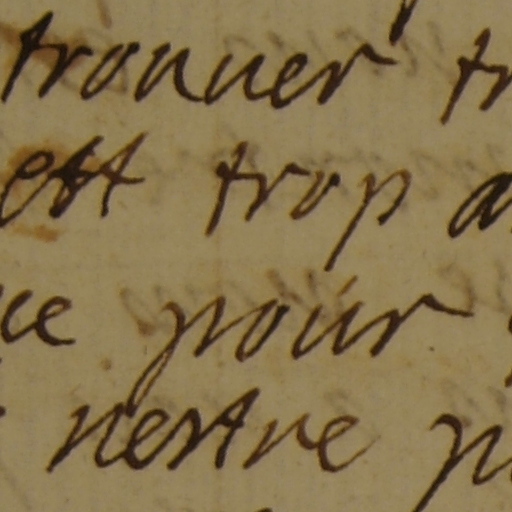 trouuer tr
est trop a
ue pour
nestre p